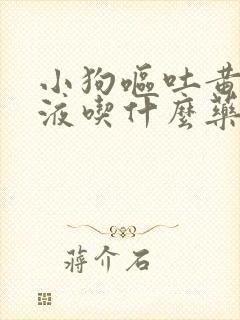 小狗嘔吐黃
液喫什麼藥
蔣介石